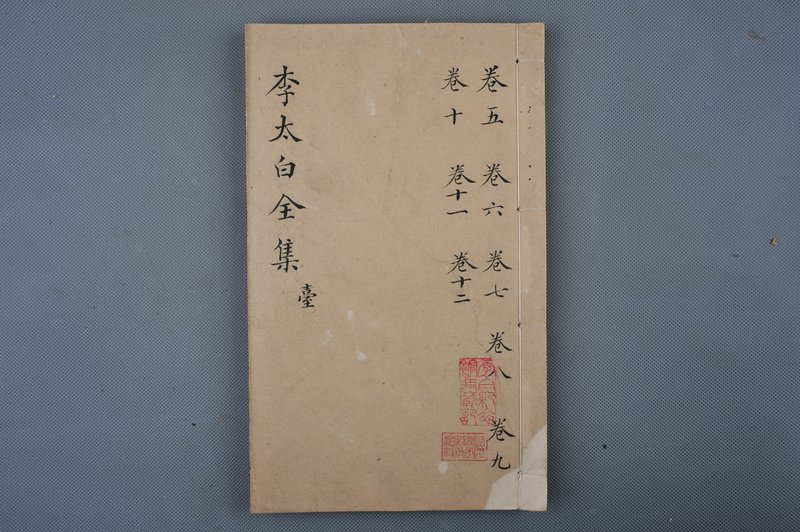 卷五 卷六 卷七 卷八 卷九
卷十 卷十一 卷十二
李太白全集 臺